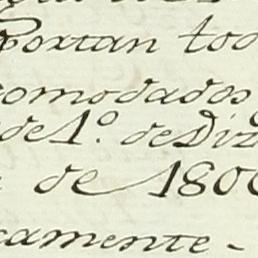 Portan tod
comodados
de 1º. de Diz
de 180
camente -